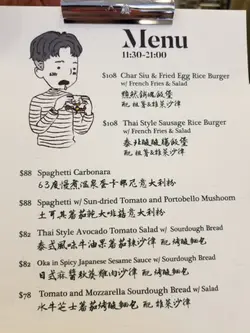 Menu
11:30-21:00
$108 Char Siu & Fried Egg Rice Burger
w/ French Fries & Salad
黯然銷魂飯堡
配 粗薯&雜菜沙律
$108 Thai Style Sausage Rice Burger
w/ French Fries & Salad
泰北酸酸腸飯堡
配 粗薯&雜菜沙律
$88 Spaghetti Carbonara
63度慢煮溫泉蛋卡邦尼意大利粉
$88 Spaghetti w/ Sun-dried Tomato and Portobello Mushoom
土耳其蕃茄乾大啡菇意大利粉
$82 Thai Style Avocado Tomato Salad w/ Sourdough Bread
泰式風味牛油果蕃茄辣沙律 配 烤酸麵包
$82 Oka in Spicy Japanese Sesame Sauce w/ Sourdough Bread
日式麻醬秋葵雞肉沙律 配 烤酸麵包
$78 Tomato and Mozzarella Sourdough Bread w/ Salad
水牛芝士蕃茄烤酸麵包 配 雜菜沙律